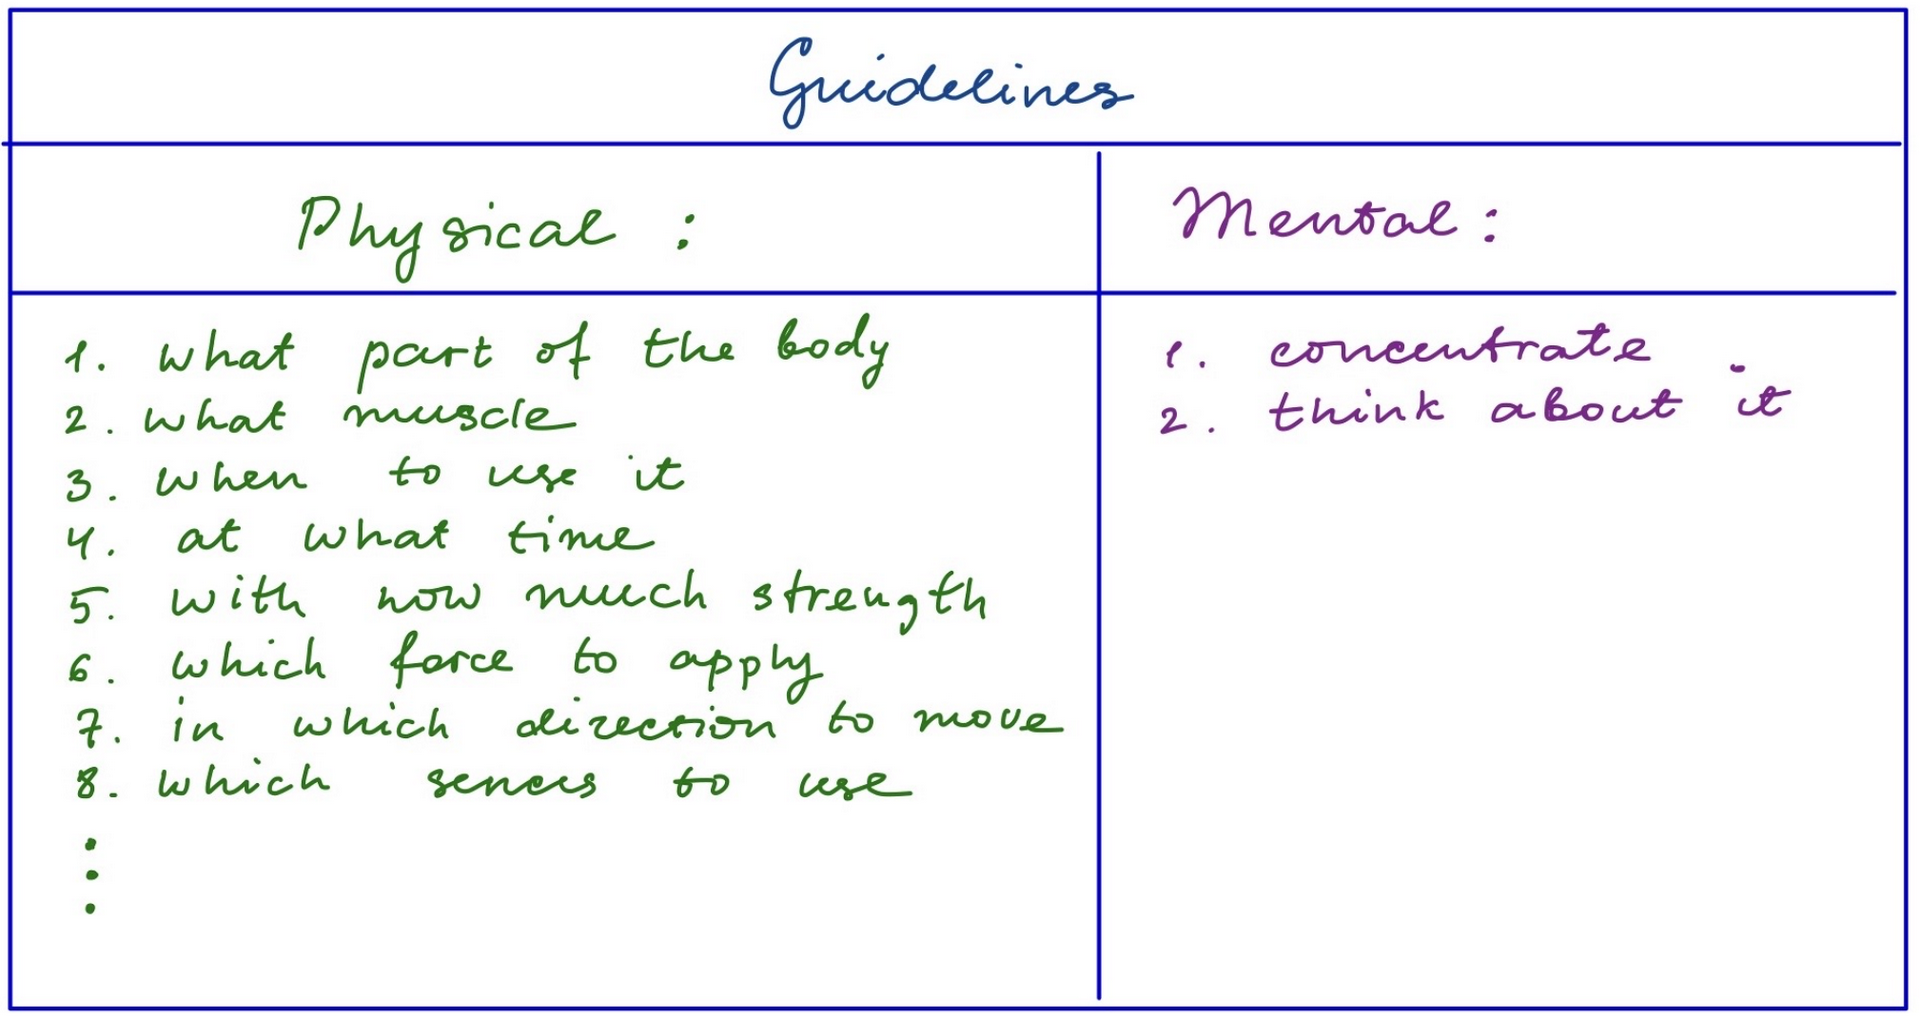 Guidelines
Physical :
Mental :
1. what part of the body
2. what muscle
3. when to use it
4. at what time
5. with how much strength
6. which force to apply
7. in which direction to move
8. which sences to use
⋮
1. concentrate
2. think about it